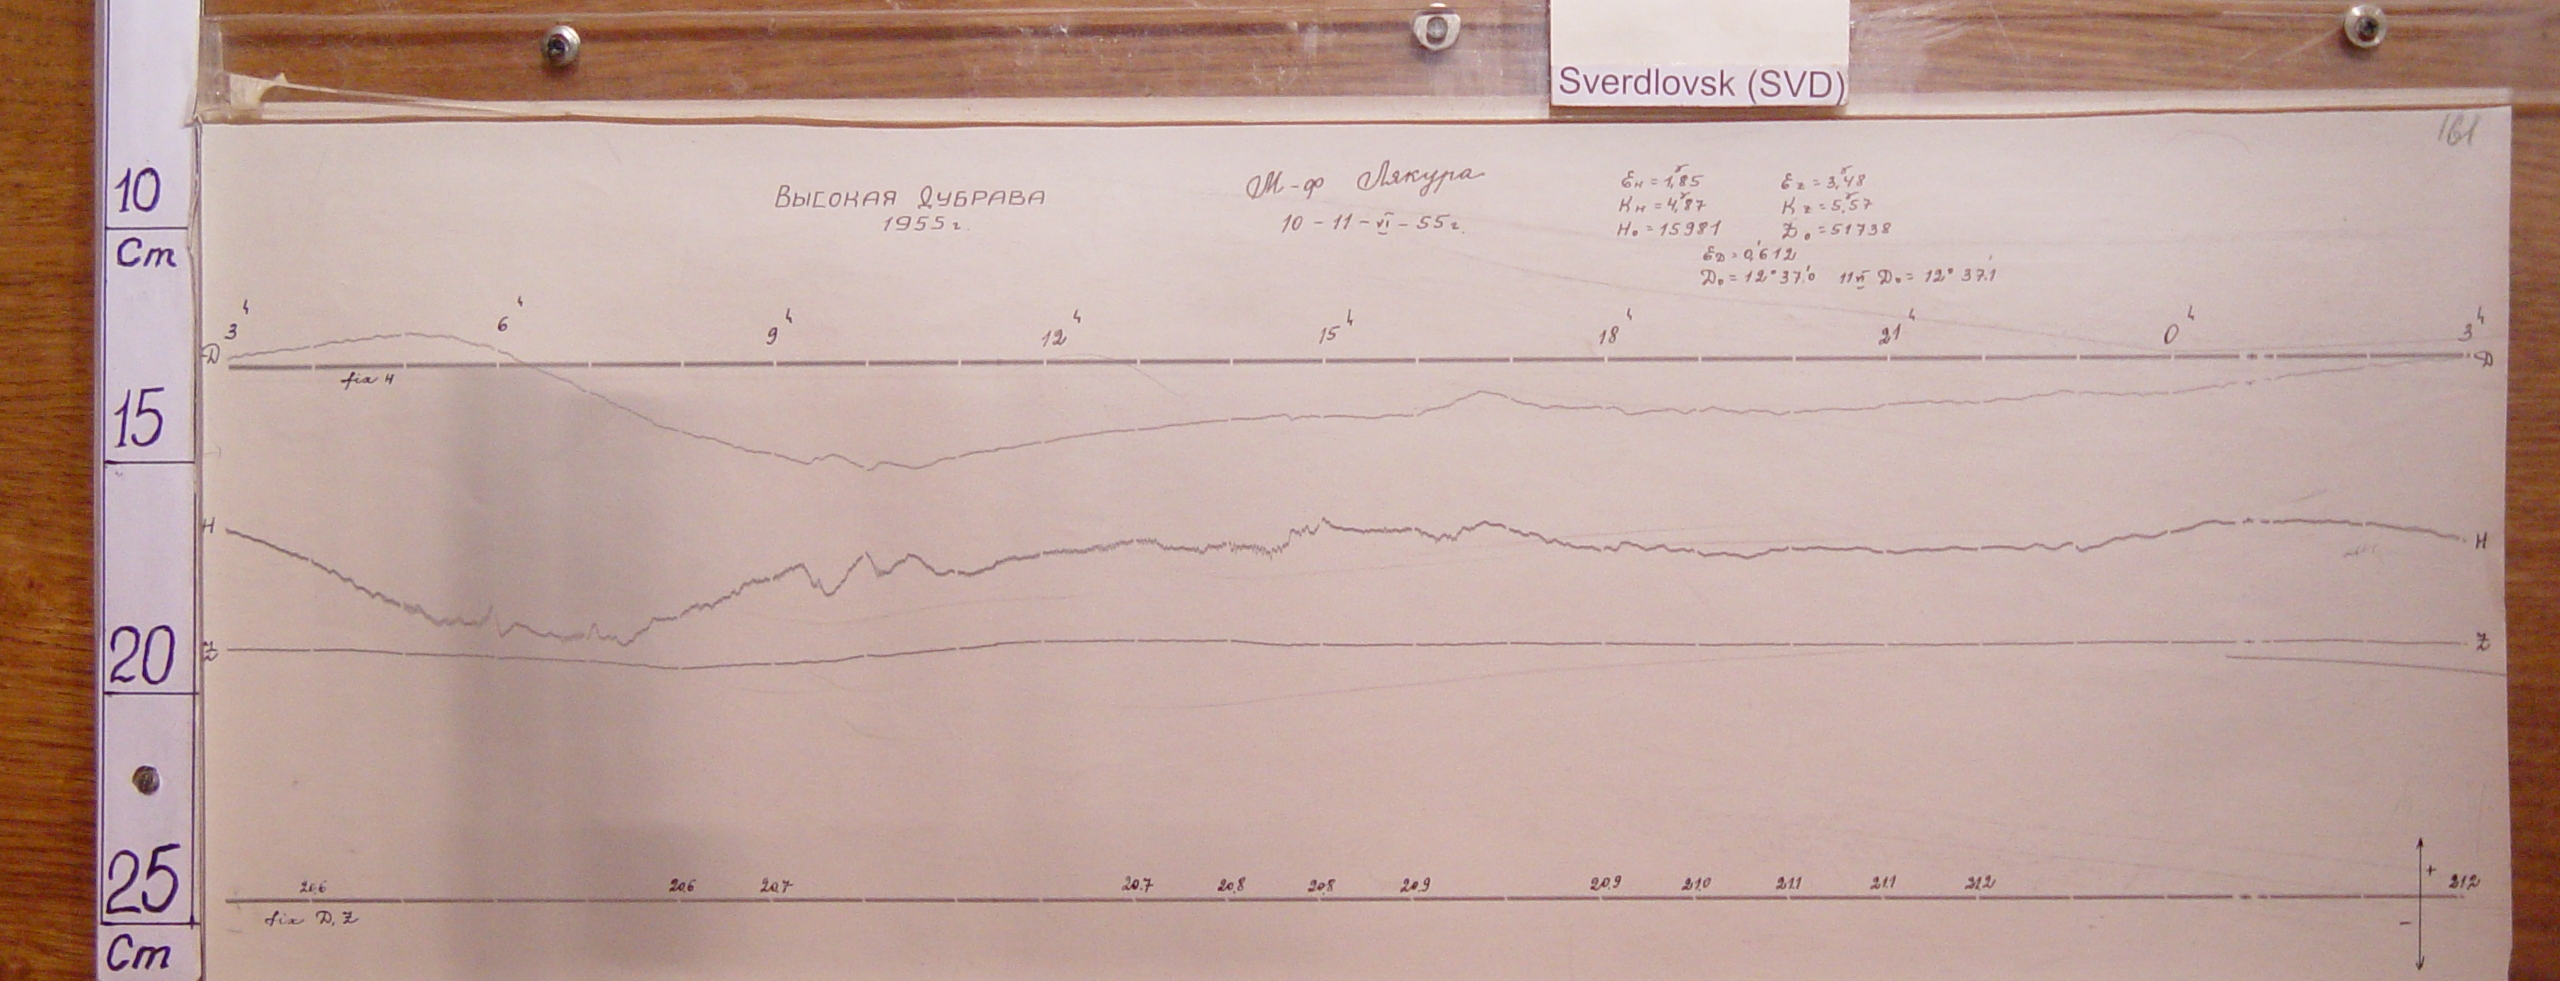 Sverdlovsk (SVD)
161
10
Cm
15
20
25
Cm
Высокая Дубрава
1955 г.
М-ф Лякура
10 - 11 - VI - 55 г.
Eн = 1,γ85 Ez = 3,γ48
Kн = 4,γ87 Kz = 5,γ57
H₀ = 15981 Z₀ = 51738
ED = 0,′612
D₀ = 12° 37,′0 11 VI D₀ = 12° 37.′1
3ч 6ч 9ч 12ч 15ч 18ч 21ч 0ч 3ч
D D
fix H
H H
Z Z
20,6 20,6 20,7 20.7 20,8 20,8 20,9 20,9 21,0 21,1 21,1 21,2 21,2
fix D, Z
+
-